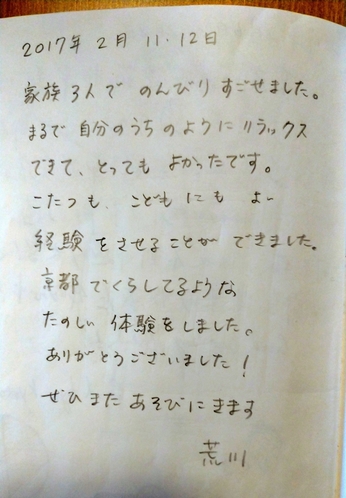 2017年 2月 11・12日
家族3人で のんびり すごせました。
まるで 自分のうち のように リラックス
できて、とっても よかったです。
こたつも、こども にも よい
経験 をさせる ことが できました。
京都 で くらしてるような
たのしい 体験をしました。
ありがとうございました!
ぜひ また あそびに きます
荒川